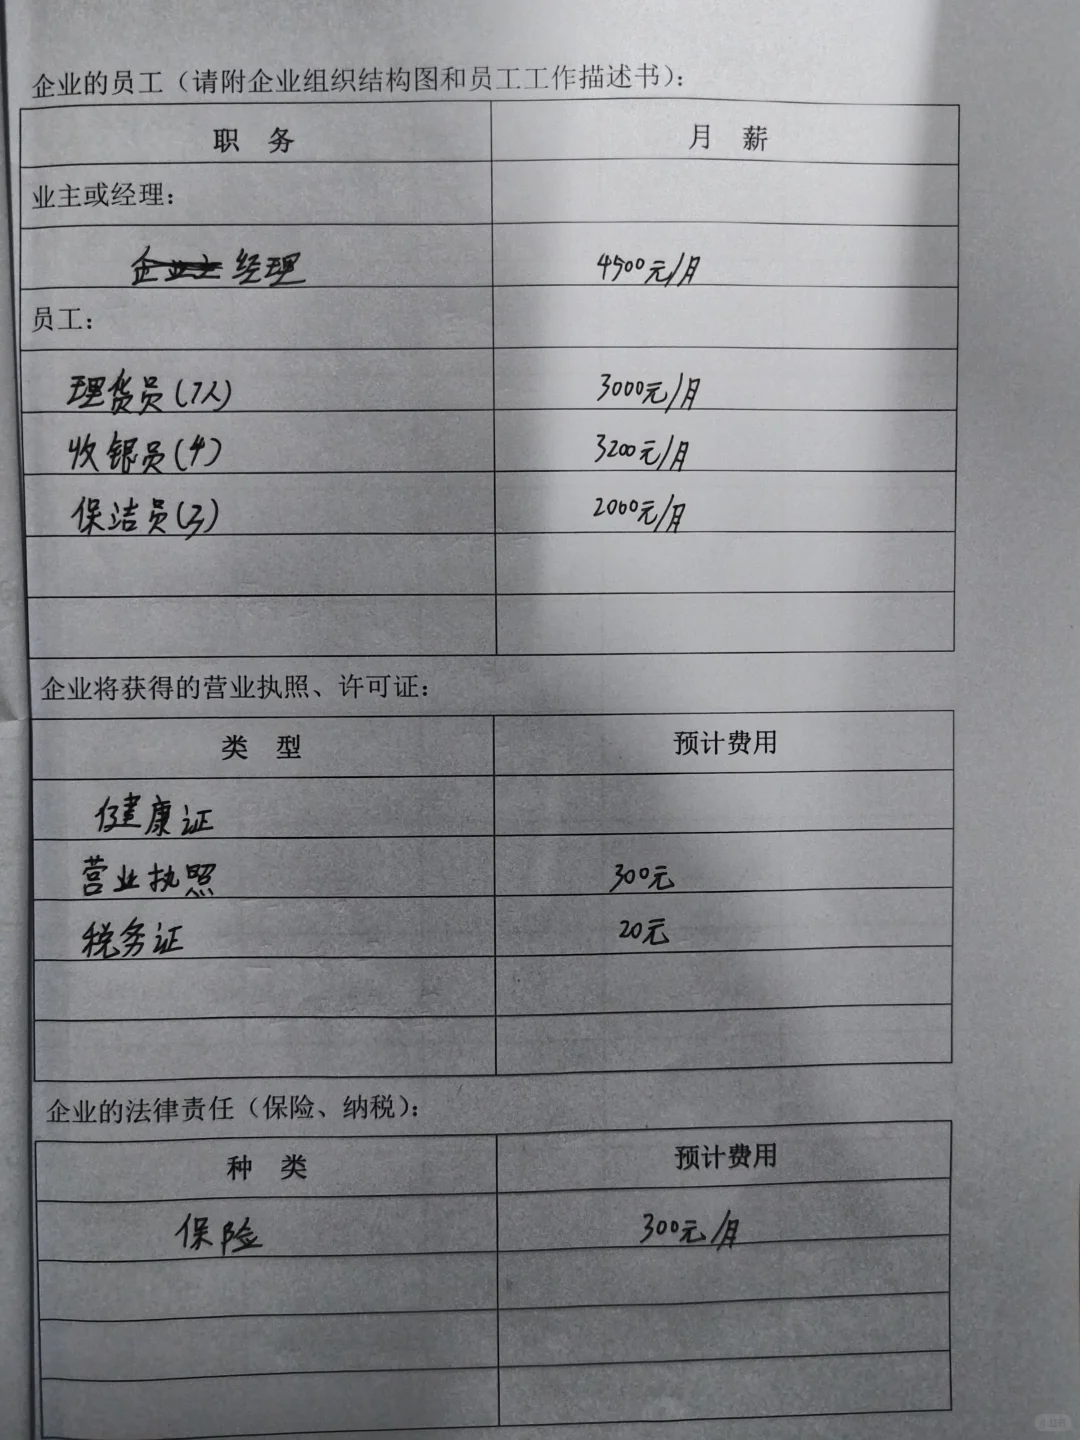 企业的员工（请附企业组织结构图和员工工作描述书）：
职 务 月 薪
业主或经理：
经理 4500元/月
员工：
理货员(7人) 3000元/月
收银员(4) 3200元/月
保洁员(3) 2000元/月
企业将获得的营业执照、许可证：
类 型 预计费用
健康证
营业执照 300元
税务证 20元
企业的法律责任（保险、纳税）：
种 类 预计费用
保险 300元/月